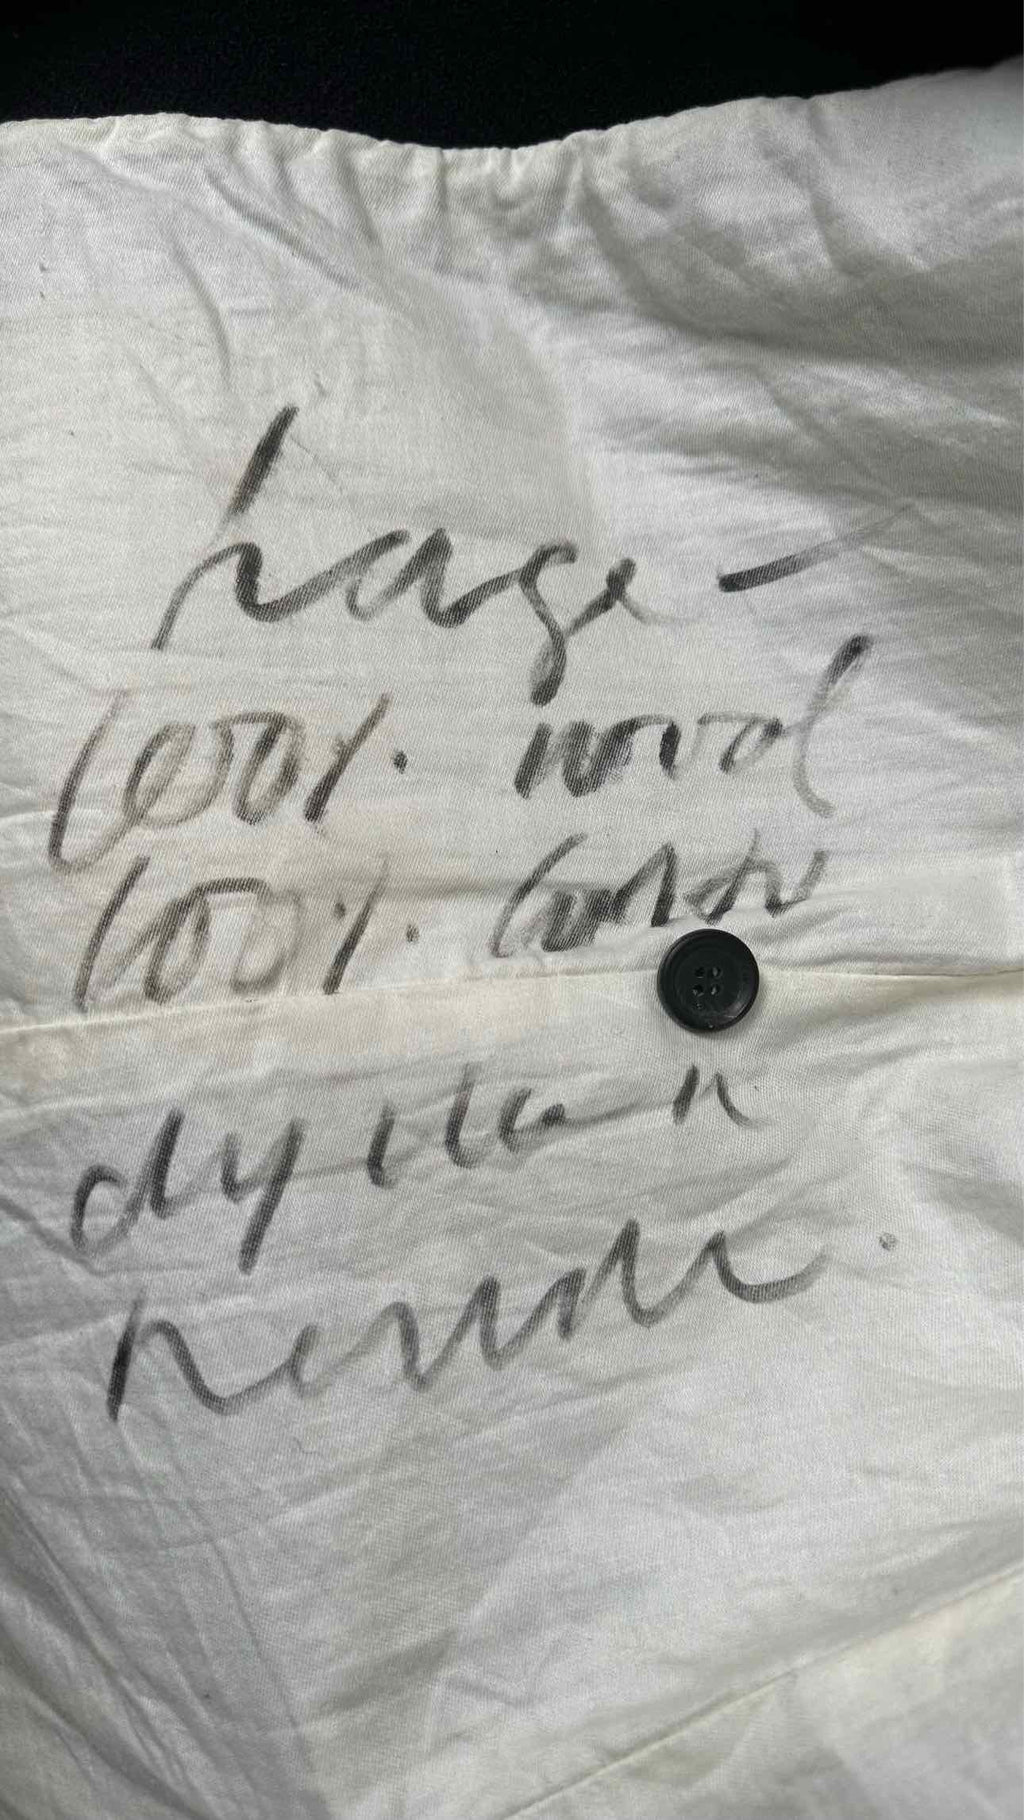 large -
100% wool
100% cotton
dry clean